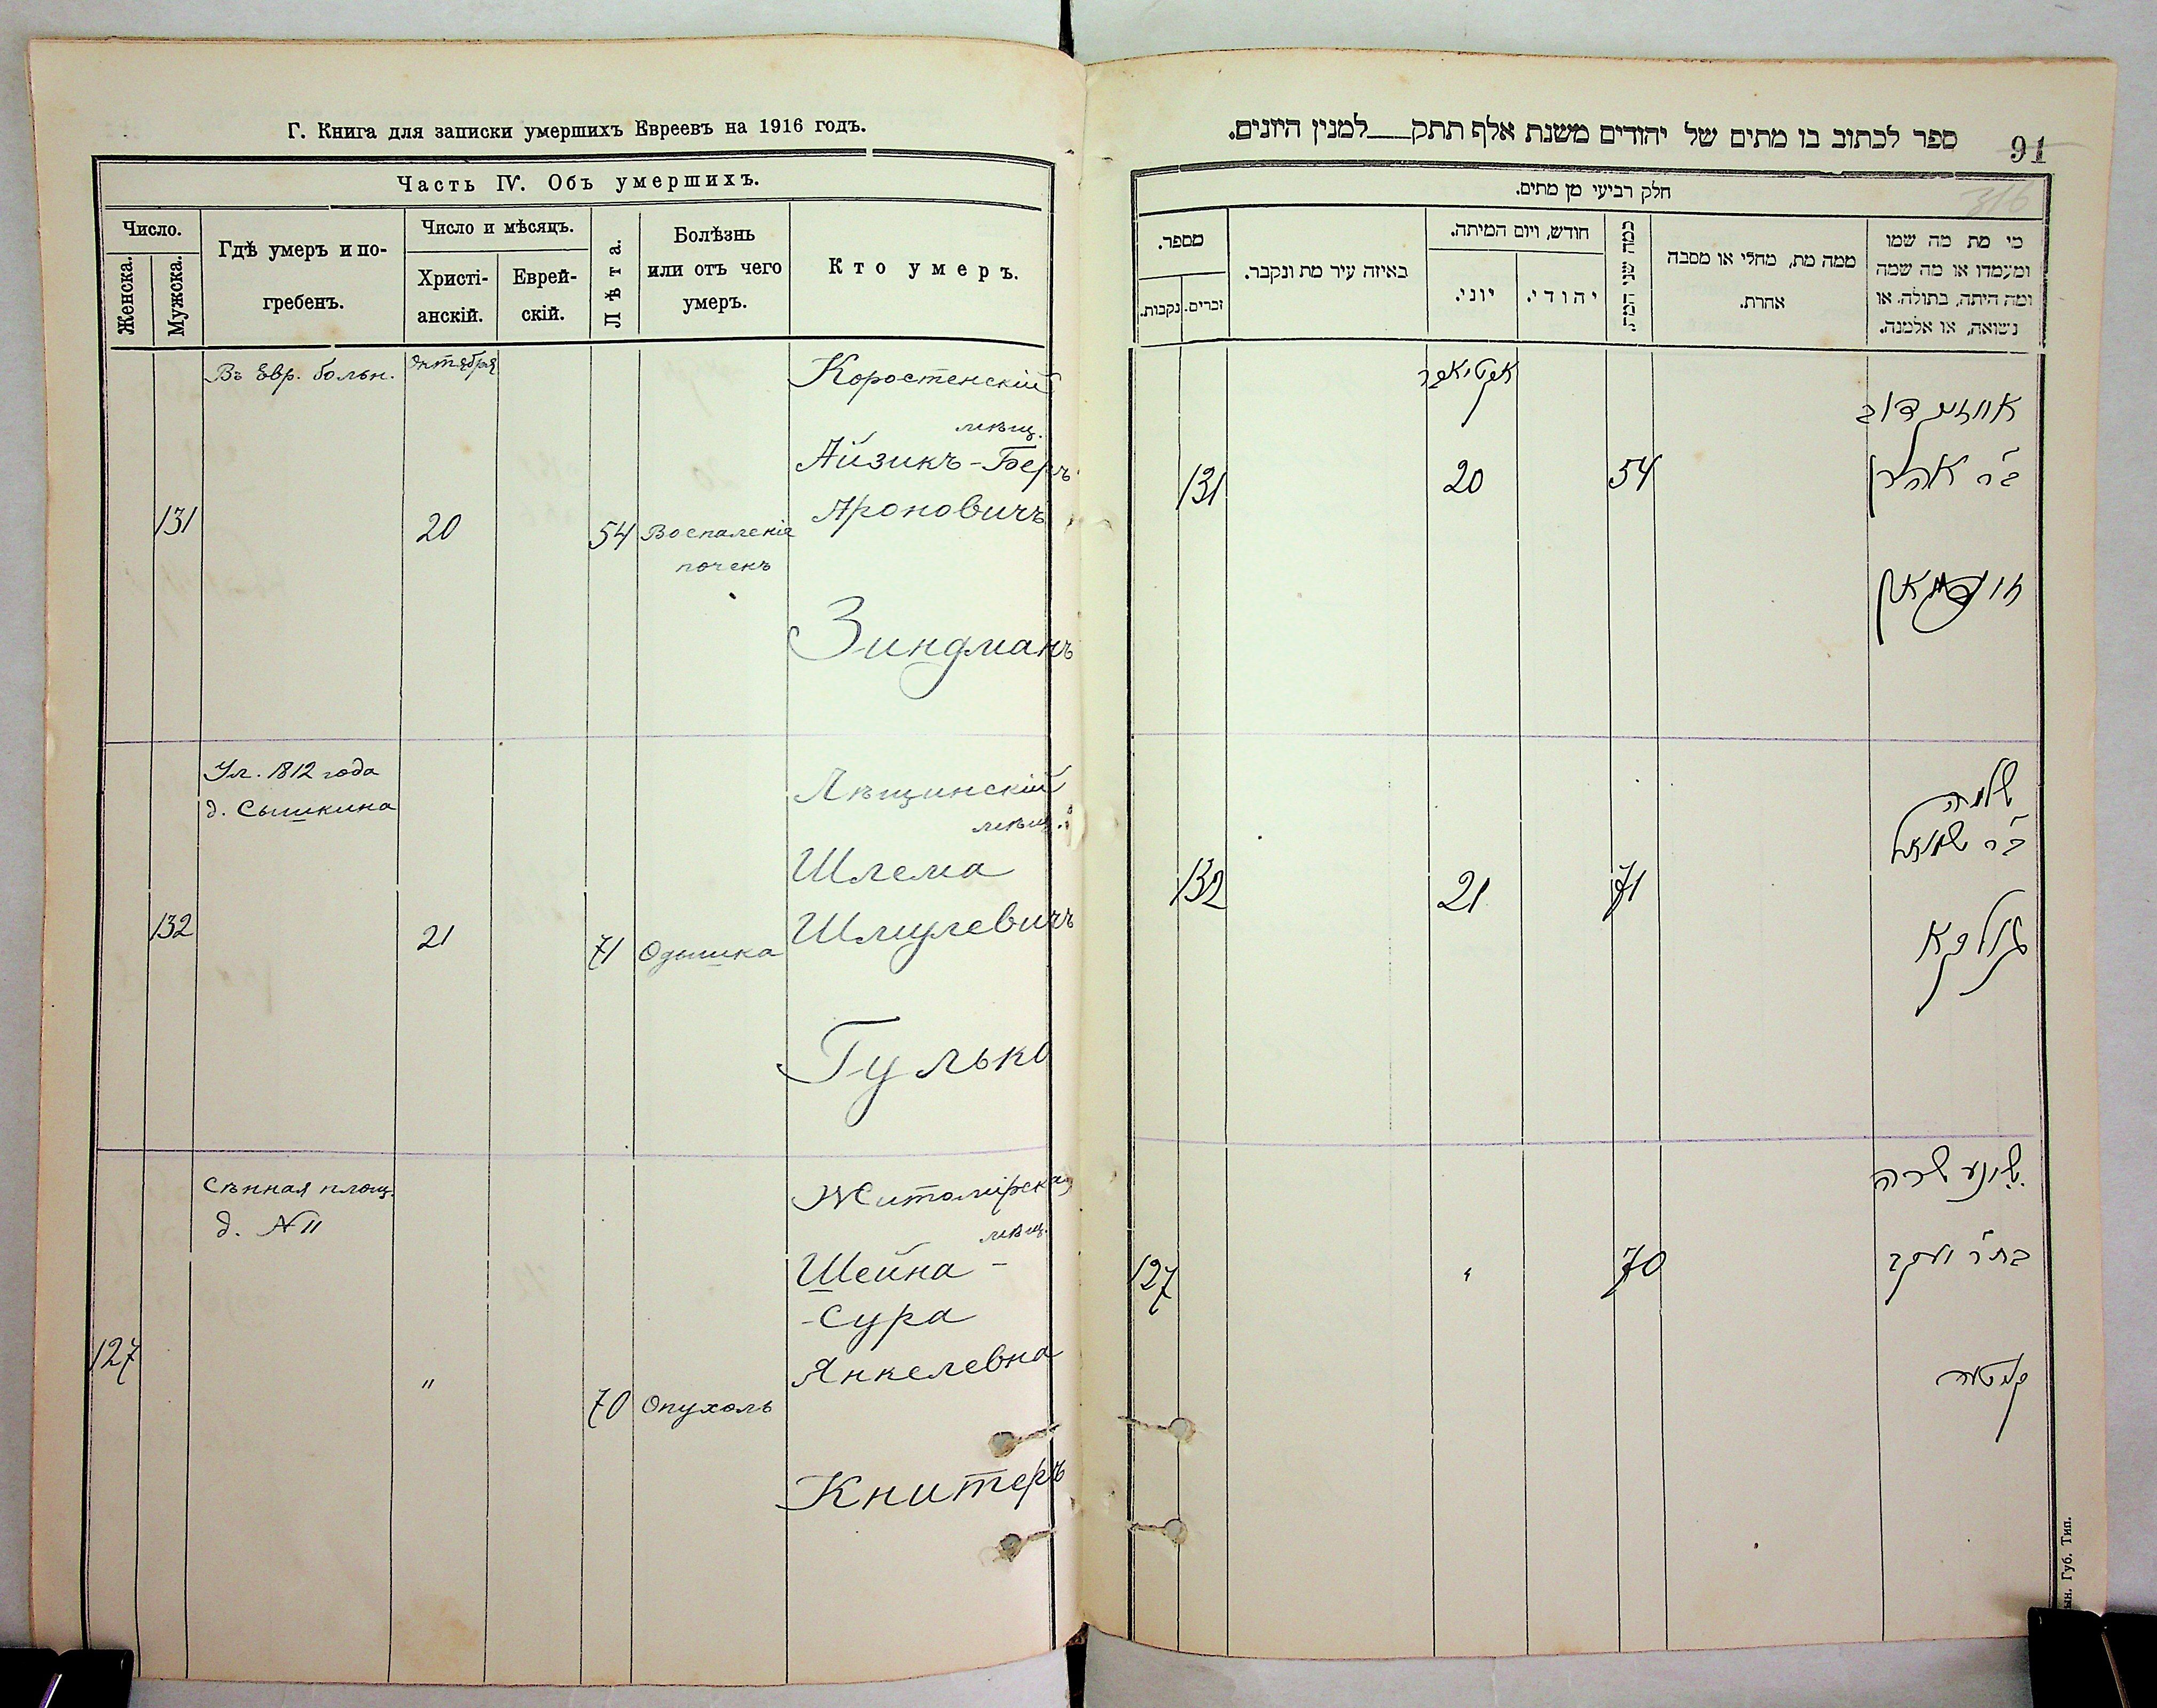 Г. Книга для записки умершихъ Евреевъ на 1916 годъ.
Часть IV. Объ умершихъ.
Число.
Женска.
Мужска.
Гдѣ умеръ и по-
гребенъ.
Число и мѣсяцъ.
Христі-
анскій.
Еврей-
скій.
Лѣта.
Болѣзнь
или отъ чего
умеръ.
Кто умеръ.
Въ Евр. больн.
Октября
Коростенскій
мѣщ.
Айзикъ-Беръ
Ароновичъ
131
20
54
Воспаленіе
почекъ
Зиндманъ
Ул. 1812 года
д. Сышкина
Лѣщинскій
мѣщ.
Шлема
Шмулевичъ
132
21
71
Одышка
Гулько
Сѣнная площ.
д. № 11
Житомірская
мѣщ.
Шейна-
-Сура
Янкелевна
127
"
70
Опухоль
Книтеръ
ספר לכתוב בו מתים של יהודים משנת אלף תתק למנין היונים.
91
316
חלק רביעי מן מתים.
מי מת מה שמו
ומעמדו או מה שמה
ומה היתה, בתולה או
נשואה, או אלמנה.
ממה מת, מחלי או מסבה
אחרת.
כמה שני המת.
חודש, ויום המיתה.
יהודי.
יוני.
באיזה עיר מת ונקבר.
מספר.
זכרים.
נקבות.
אקטיאבר
ב״ר אהרן
54
20
131
שלמה
ב״ר שמואל
71
21
132
גולקא
שיינע שרה
בת״ר יעקב
70
"
127
ын. Губ. Тип.